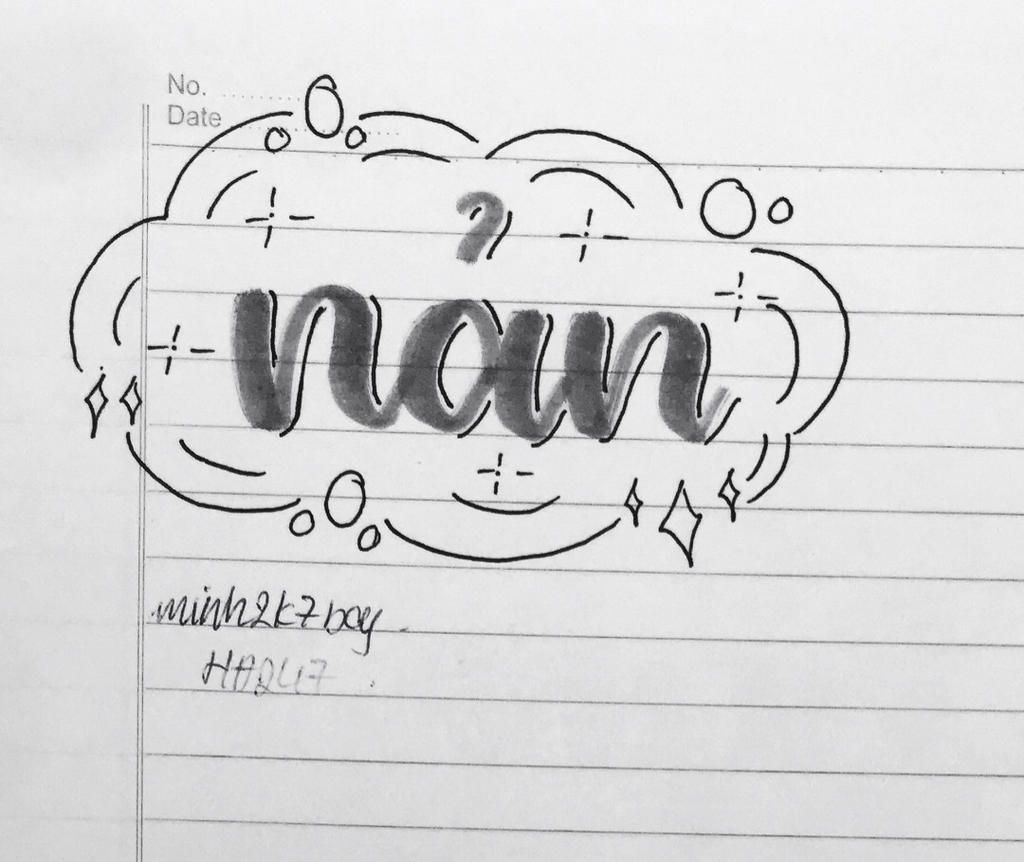 No.
Date
nản
minh2k7boy